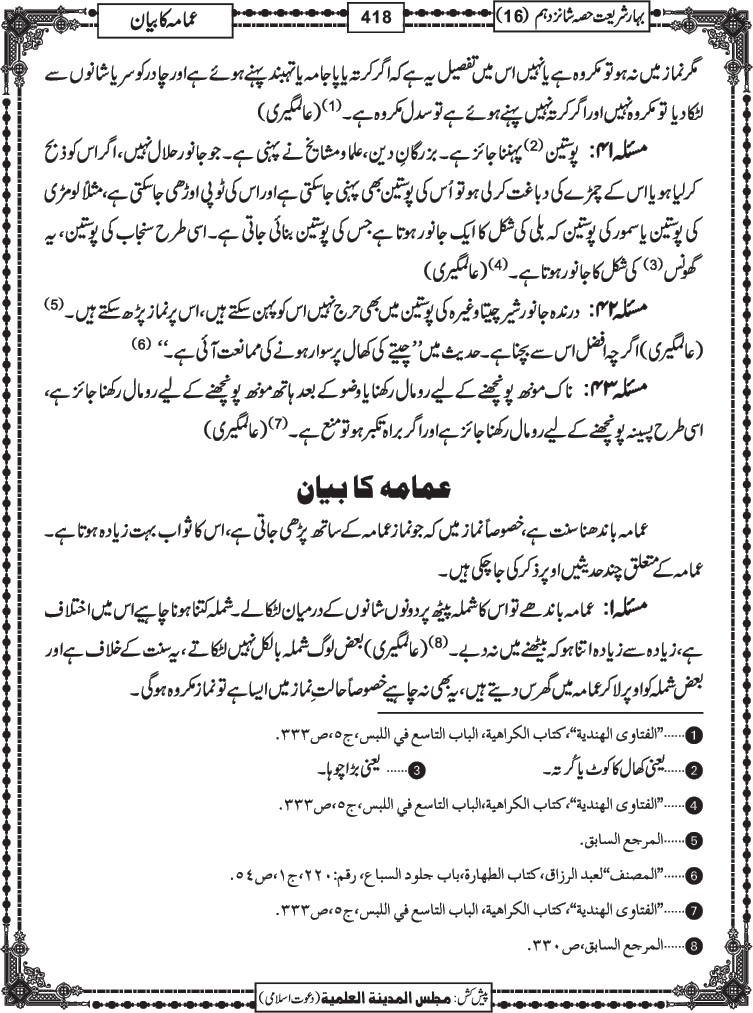 بہار شریعت حصہ شانزدہم (16)
418
عمامہ کا بیان
مگر نماز میں نہ ہو تو مکروہ ہے یا نہیں اس میں تفصیل یہ ہے کہ اگر کرتہ یا پاجامہ یا تہبند پہنے ہوئے ہے اور چادر کو سر یا شانوں سے
لٹکا دیا تو مکروہ نہیں اور اگر کرتہ نہیں پہنے ہوئے ہے تو سدل مکروہ ہے۔(1) (عالمگیری)
مسئلہ ۴۱: پوستین (2) پہننا جائز ہے۔ بزرگانِ دین، علما و مشایخ نے پہنی ہے۔ جو جانور حلال نہیں، اگر اس کو ذبح
کرلیا ہو یا اس کے چمڑے کی دباغت کرلی ہو تو اُس کی پوستین بھی پہنی جاسکتی ہے اور اس کی ٹوپی اوڑھی جاسکتی ہے، مثلاً لومڑی
کی پوستین یا سمور کی پوستین کہ بلی کی شکل کا ایک جانور ہوتا ہے جس کی پوستین بنائی جاتی ہے۔ اسی طرح سنجاب کی پوستین، یہ
گھونس (3) کی شکل کا جانور ہوتا ہے۔(4) (عالمگیری)
مسئلہ ۴۲: درندہ جانور شیر چیتا وغیرہ کی پوستین میں بھی حرج نہیں اس کو پہن سکتے ہیں، اس پر نماز پڑھ سکتے ہیں۔(5)
(عالمگیری) اگرچہ افضل اس سے بچنا ہے۔ حدیث میں ’’چیتے کی کھال پر سوار ہونے کی ممانعت آئی ہے۔‘‘ (6)
مسئلہ ۴۳: ناک مونھ پونچھنے کے لیے رومال رکھنا یا وضو کے بعد ہاتھ مونھ پونچھنے کے لیے رومال رکھنا جائز ہے،
اسی طرح پسینہ پونچھنے کے لیے رومال رکھنا جائز ہے اور اگر براہ تکبر ہو تو منع ہے۔(7) (عالمگیری)
عمامہ کا بیان
عمامہ باندھنا سنت ہے، خصوصاً نماز میں کہ جو نماز عمامہ کے ساتھ پڑھی جاتی ہے، اس کا ثواب بہت زیادہ ہوتا ہے۔
عمامہ کے متعلق چند حدیثیں اوپر ذکر کی جاچکی ہیں۔
مسئلہ ۱: عمامہ باندھے تو اس کا شملہ پیٹھ پر دونوں شانوں کے درمیان لٹکا لے۔ شملہ کتنا ہونا چاہیے اس میں اختلاف
ہے، زیادہ سے زیادہ اتنا ہو کہ بیٹھنے میں نہ دبے۔(8) (عالمگیری) بعض لوگ شملہ بالکل نہیں لٹکاتے، یہ سنت کے خلاف ہے اور
بعض شملہ کو اوپر لا کر عمامہ میں گھرس دیتے ہیں، یہ بھی نہ چاہیے خصوصاً حالتِ نماز میں ایسا ہے تو نماز مکروہ ہوگی۔
1......"الفتاوی الهندیة"، کتاب الکراهیة، الباب التاسع في اللبس، ج٥، ص٣٣٣.
2......یعنی کھال کا کوٹ یا کُرتہ۔ 3...... یعنی بڑا چوہا۔
4......"الفتاوی الهندیة"، کتاب الکراهیة، الباب التاسع في اللبس، ج٥، ص٣٣٣.
5......المرجع السابق.
6......"المصنف"لعبد الرزاق، کتاب الطهارة، باب جلود السباع، رقم: ٢٢٠، ج١، ص٥٤.
7......"الفتاوی الهندیة"، کتاب الکراهیة، الباب التاسع في اللبس، ج٥، ص٣٣٣.
8......المرجع السابق، ص٣٣٠.
پیش کش: مجلس المدینة العلمیة (دعوت اسلامی)